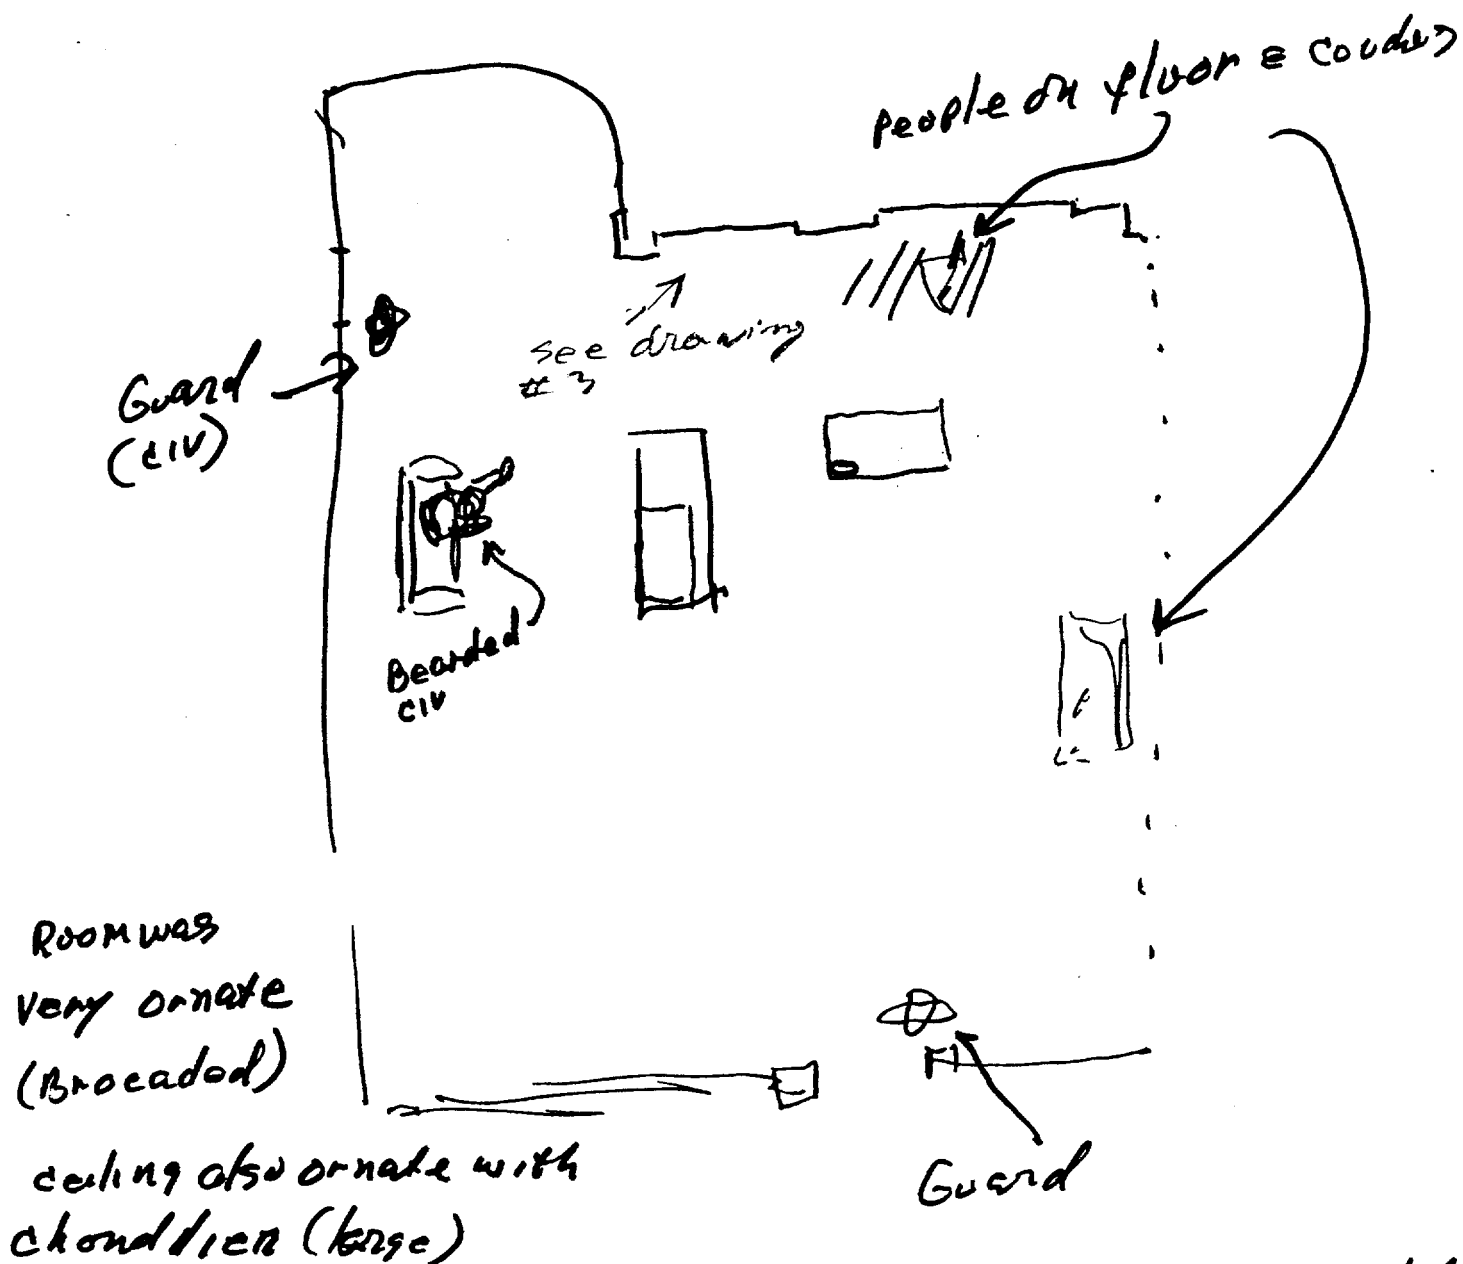 People on floor & couches
see drawing
# 3
Guard
(CIV)
Bearded
CIV
Room was
very ornate
(Brocaded)
ceiling also ornate with
chanddlier (large)
Guard